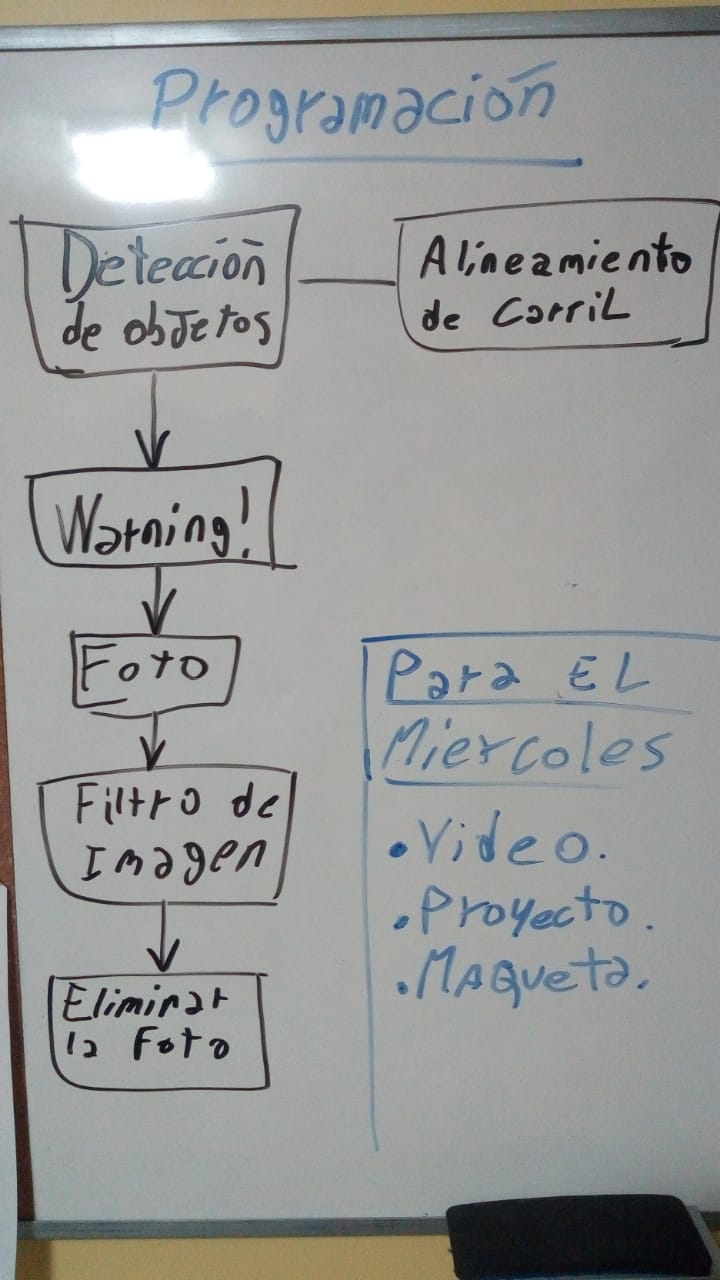 Programación
Detección
de objetos
Alineamiento
de Carril
Warning!
Foto
Filtro de
Imagen
Eliminar
la Foto
Para EL
Miercoles
• Video.
• Proyecto.
• Maqueta.